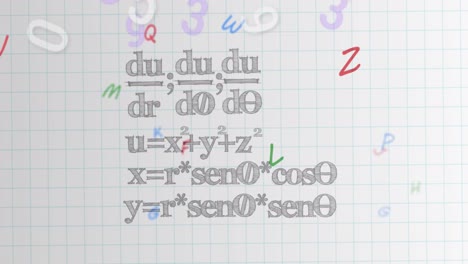 du/dr ; du/dØ ; du/dθ
u=x²+y²+z²
x=r*senØ*cosθ
y=r*senØ*senθ